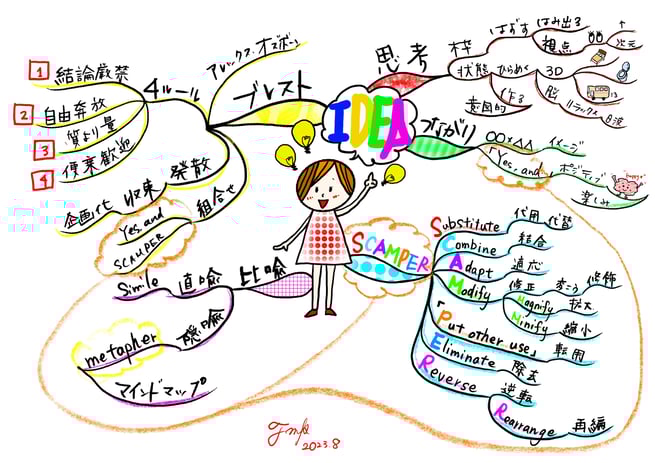 IDEA
思考
枠
はずす
はみ出る
視点
次元
状態
ひらめく
3D
脳
リラックス
α波
意図的
作る
つながり
○○×△△
イメージ
「Yes, and」
ポジティブ
楽しみ
SCAMPER
Substitute
代用
代替
Combine
結合
Adapt
適応
Modify
修正
修飾
Magnify
拡大
Minify
縮小
「Put other use」
転用
Eliminate
除去
Reverse
逆転
Rearrange
再編
比喩
直喩
Simile
隠喩
metapher
マインドマップ
ブレスト
アレックス・オズボーン
4ルール
1 結論厳禁
2 自由奔放
3 質より量
4 便乗歓迎
発散
収束
企画化
組合せ
Yes, and
SCAMPER
2023.8